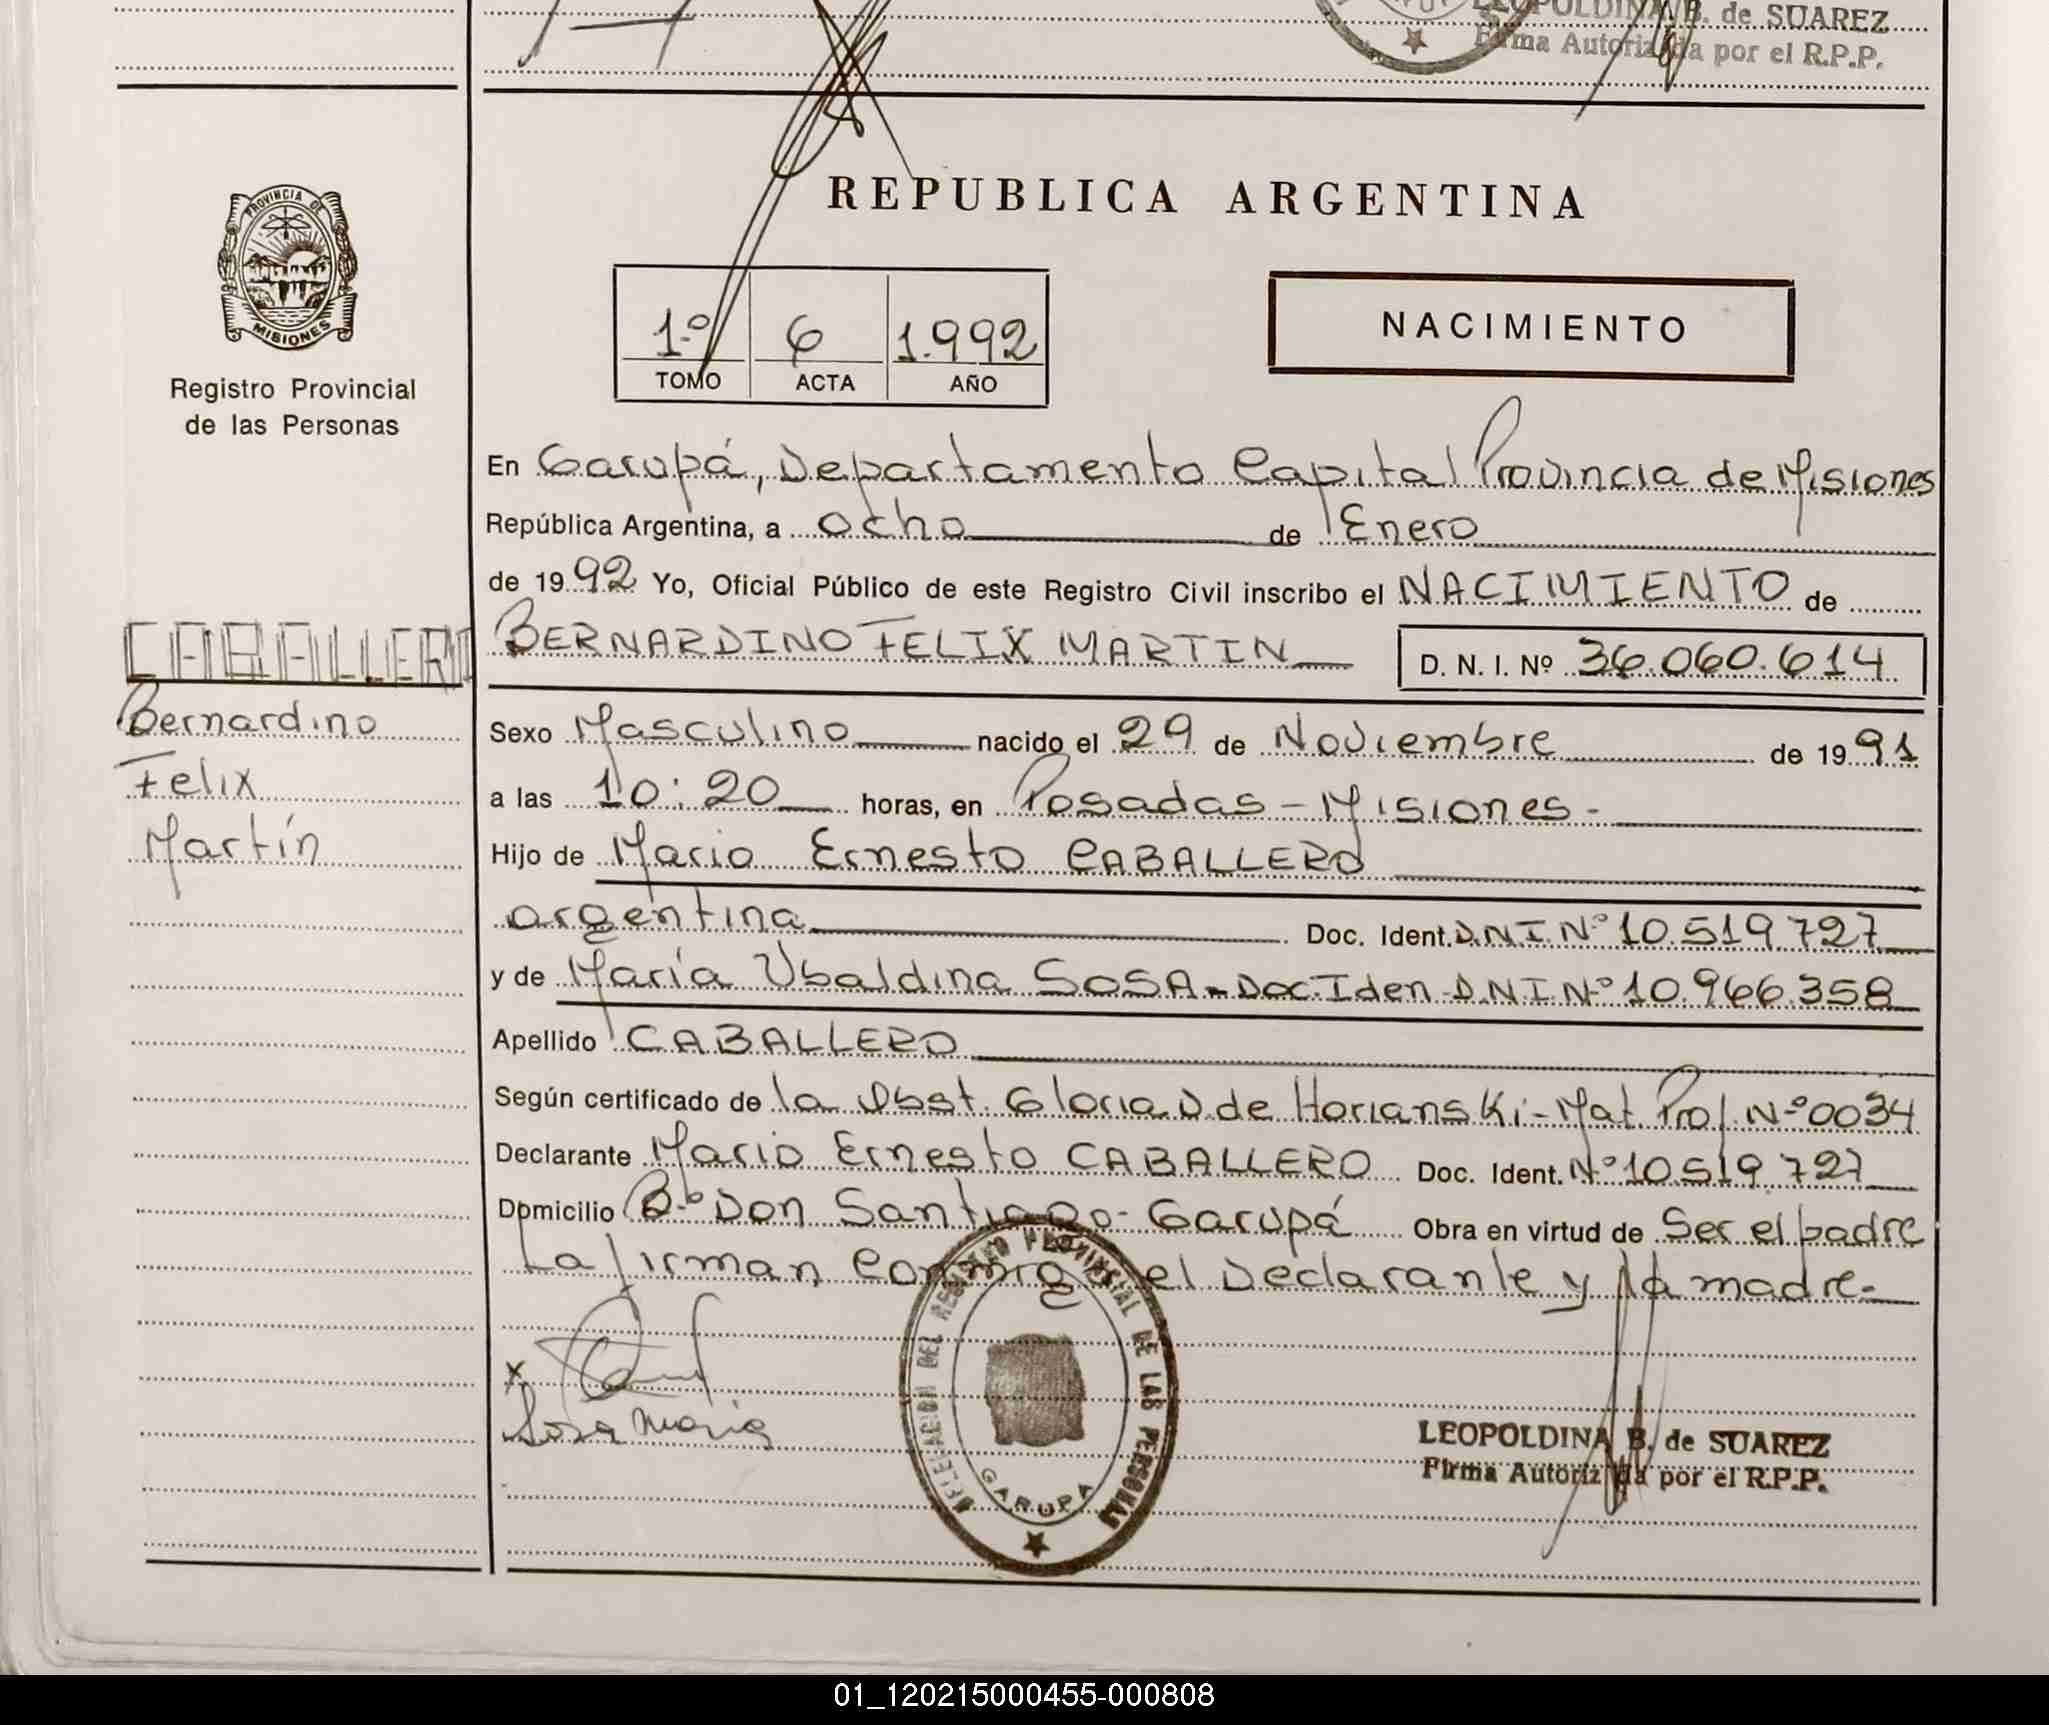 LEOPOLDINA B. de SUAREZ
Firma Autorizada por el R.P.P.
PROVINCIA DE
MISIONES
Registro Provincial
de las Personas
REPUBLICA ARGENTINA
1º 6 1.992
TOMO ACTA AÑO
NACIMIENTO
En Garupá, Departamento Capital Provincia de Misiones
República Argentina, a ocho de Enero
de 1992 Yo, Oficial Público de este Registro Civil inscribo el NACIMIENTO de
BERNARDINO FELIX MARTIN D. N. I. Nº 36.060.614
CABALLERO
Bernardino
Felix
Martín
Sexo Masculino nacido el 29 de Noviembre de 1991
a las 10:20 horas, en Posadas - Misiones -
Hijo de Mario Ernesto CABALLERO
argentina Doc. Ident. D.N.I Nº 10.519.727
y de María Ubaldina SOSA - Doc. Iden D.N.I Nº 10.966.358
Apellido CABALLERO
Según certificado de la Obst. Gloria D. de Horianski - Mat. Prof. Nº 0034
Declarante Mario Ernesto CABALLERO Doc. Ident. Nº 10.519.727
Domicilio Bº Don Santiago - Garupá Obra en virtud de Ser el padre
La firman conmigo el Declarante y la madre -
x
Sosa Maria
DELEGACION DEL REGISTRO PROVINCIAL DE LAS PERSONAS
GARUPA
LEOPOLDINA B. de SUAREZ
Firma Autorizada por el R.P.P.
01_120215000455-000808